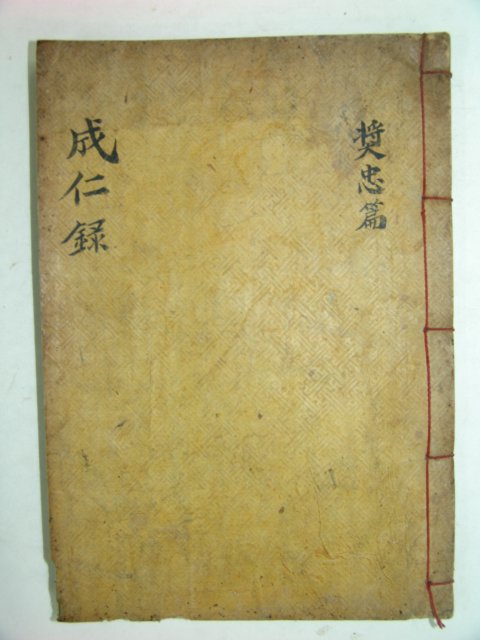 奬忠篇
成仁録